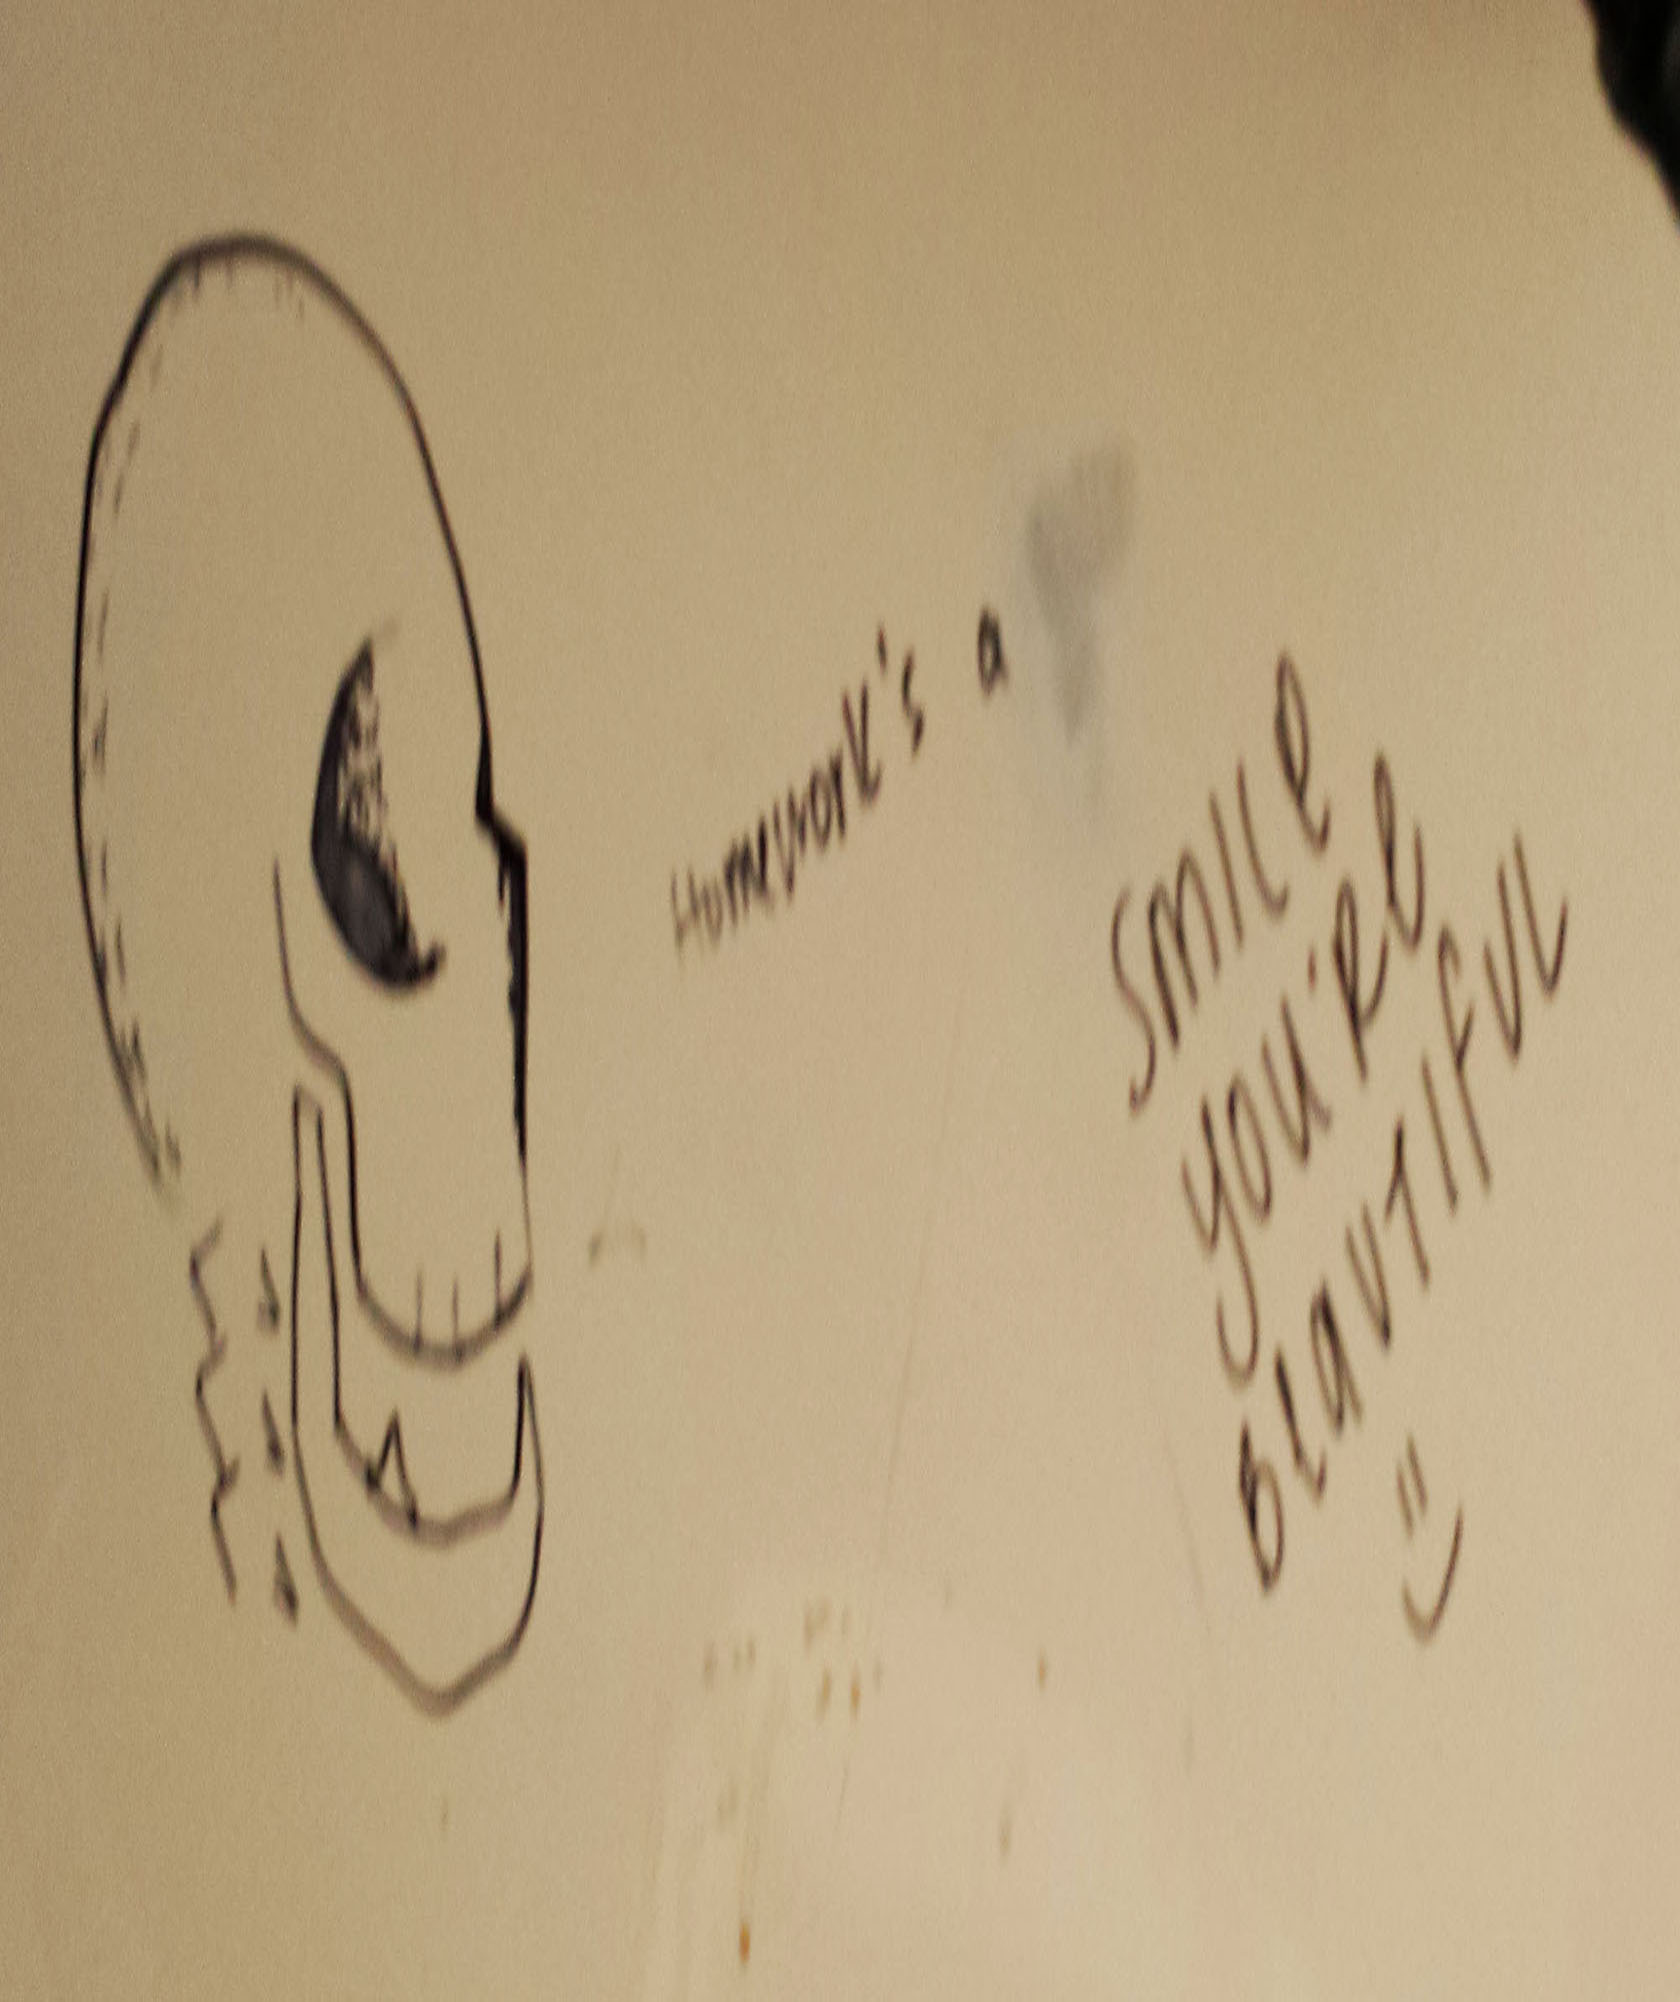 Homework's a
SMILe
you'Re
BeaUTIFUL
=)